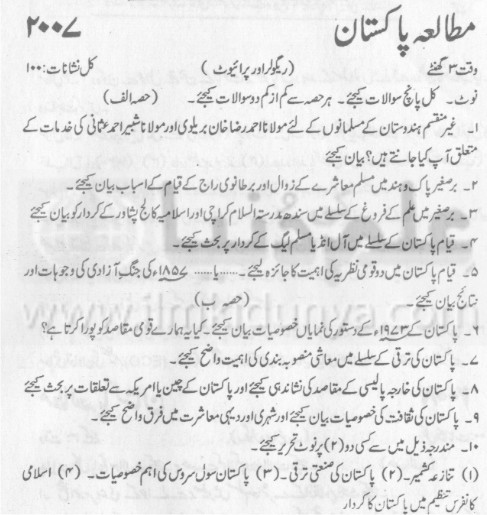 مطالعہ پاکستان ۲۰۰۷
وقت ۳ گھنٹے ( ریگولر اور پرائیوٹ ) کل نشانات: ۱۰۰
نوٹ۔ کل پانچ سوالات کیجئے۔ ہر حصہ سے کم از کم دو سوالات کیجئے۔ (حصہ الف)
۱۔ غیر منقسم ہندوستان کے مسلمانوں کے لئے مولانا احمد رضا خان بریلوی اور مولانا شبیر احمد عثمانی کی خدمات کے
متعلق آپ کیا جانتے ہیں؟ بیان کیجئے۔
۲۔ برصغیر پاک و ہند میں مسلم معاشرے کے زوال اور برطانوی راج کے قیام کے اسباب بیان کیجئے۔
۳۔ برصغیر میں علم کے فروغ کے سلسلے میں سندھ مدرستہ السلام کراچی اور اسلامیہ کالج پشاور کے کردار کو بیان کیجئے
۴۔ قیام پاکستان کے سلسلے میں آل انڈیا مسلم لیگ کے کردار پر بحث کیجئے۔
۵۔ قیام پاکستان میں دو قومی نظریہ کی اہمیت کا جائزہ لیجئے۔......یا...... ۱۸۵۷ء کی جنگ آزادی کی وجوہات اور
نتائج بیان کیجئے۔ (حصہ ب)
۶۔ پاکستان کے ۱۹۷۳ء کے دستور کی نمایاں خصوصیات بیان کیجئے۔ کیا یہ ہمارے قومی مقاصد کو پورا کرتا ہے؟
۷۔ پاکستان کی ترقی کے سلسلے میں معاشی منصوبہ بندی کی اہمیت واضح کیجئے۔
۸۔ پاکستان کی خارجہ پالیسی کے مقاصد کی نشاندہی کیجئے اور پاکستان کے چین یا امریکہ سے تعلقات پر بحث کیجئے
۹۔ پاکستان کی ثقافت کی خصوصیات بیان کیجئے اور شہری اور دیہی معاشرت میں فرق واضح کیجئے۔
۱۰۔ مندرجہ ذیل میں سے کسی دو (۲) پر نوٹ تحریر کیجئے۔
(۱) تنازعہ کشمیر۔ (۲) پاکستان کی صنعتی ترقی۔ (۳) پاکستان سول سروس کی اہم خصوصیات۔ (۴) اسلامی
کانفرنس تنظیم میں پاکستان کا کردار
علم کی دنیا
www.ilmkidunya.com